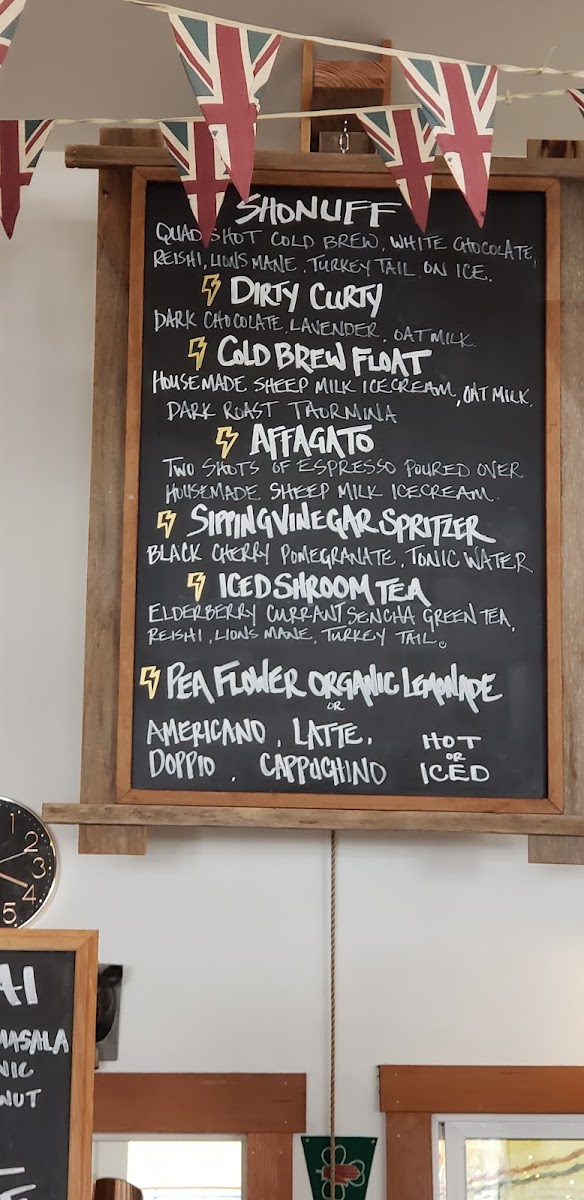 SHONUFF
QUAD SHOT COLD BREW, WHITE CHOCOLATE,
REISHI, LIONS MANE, TURKEY TAIL, ON ICE.
DIRTY CURTY
DARK CHOCOLATE, LAVENDER, OAT MILK.
COLD BREW FLOAT
HOUSEMADE SHEEP MILK ICECREAM, OAT MILK.
DARK ROAST TAORMINA
AFFAGATO
TWO SHOTS OF ESPRESSO POURED OVER
HOUSEMADE SHEEP MILK ICECREAM.
SIPPING VINEGAR SPRITZER
BLACK CHERRY POMEGRANATE, TONIC WATER
ICED SHROOM TEA
ELDERBERRY CURRANT SENCHA GREEN TEA,
REISHI, LIONS MANE, TURKEY TAIL.
PEA FLOWER ORGANIC LEMONADE
OR
AMERICANO, LATTE, HOT
OR
DOPPIO, CAPPUCHINO ICED
1
2
3
4
5
AI
MASALA
NIC
NUT